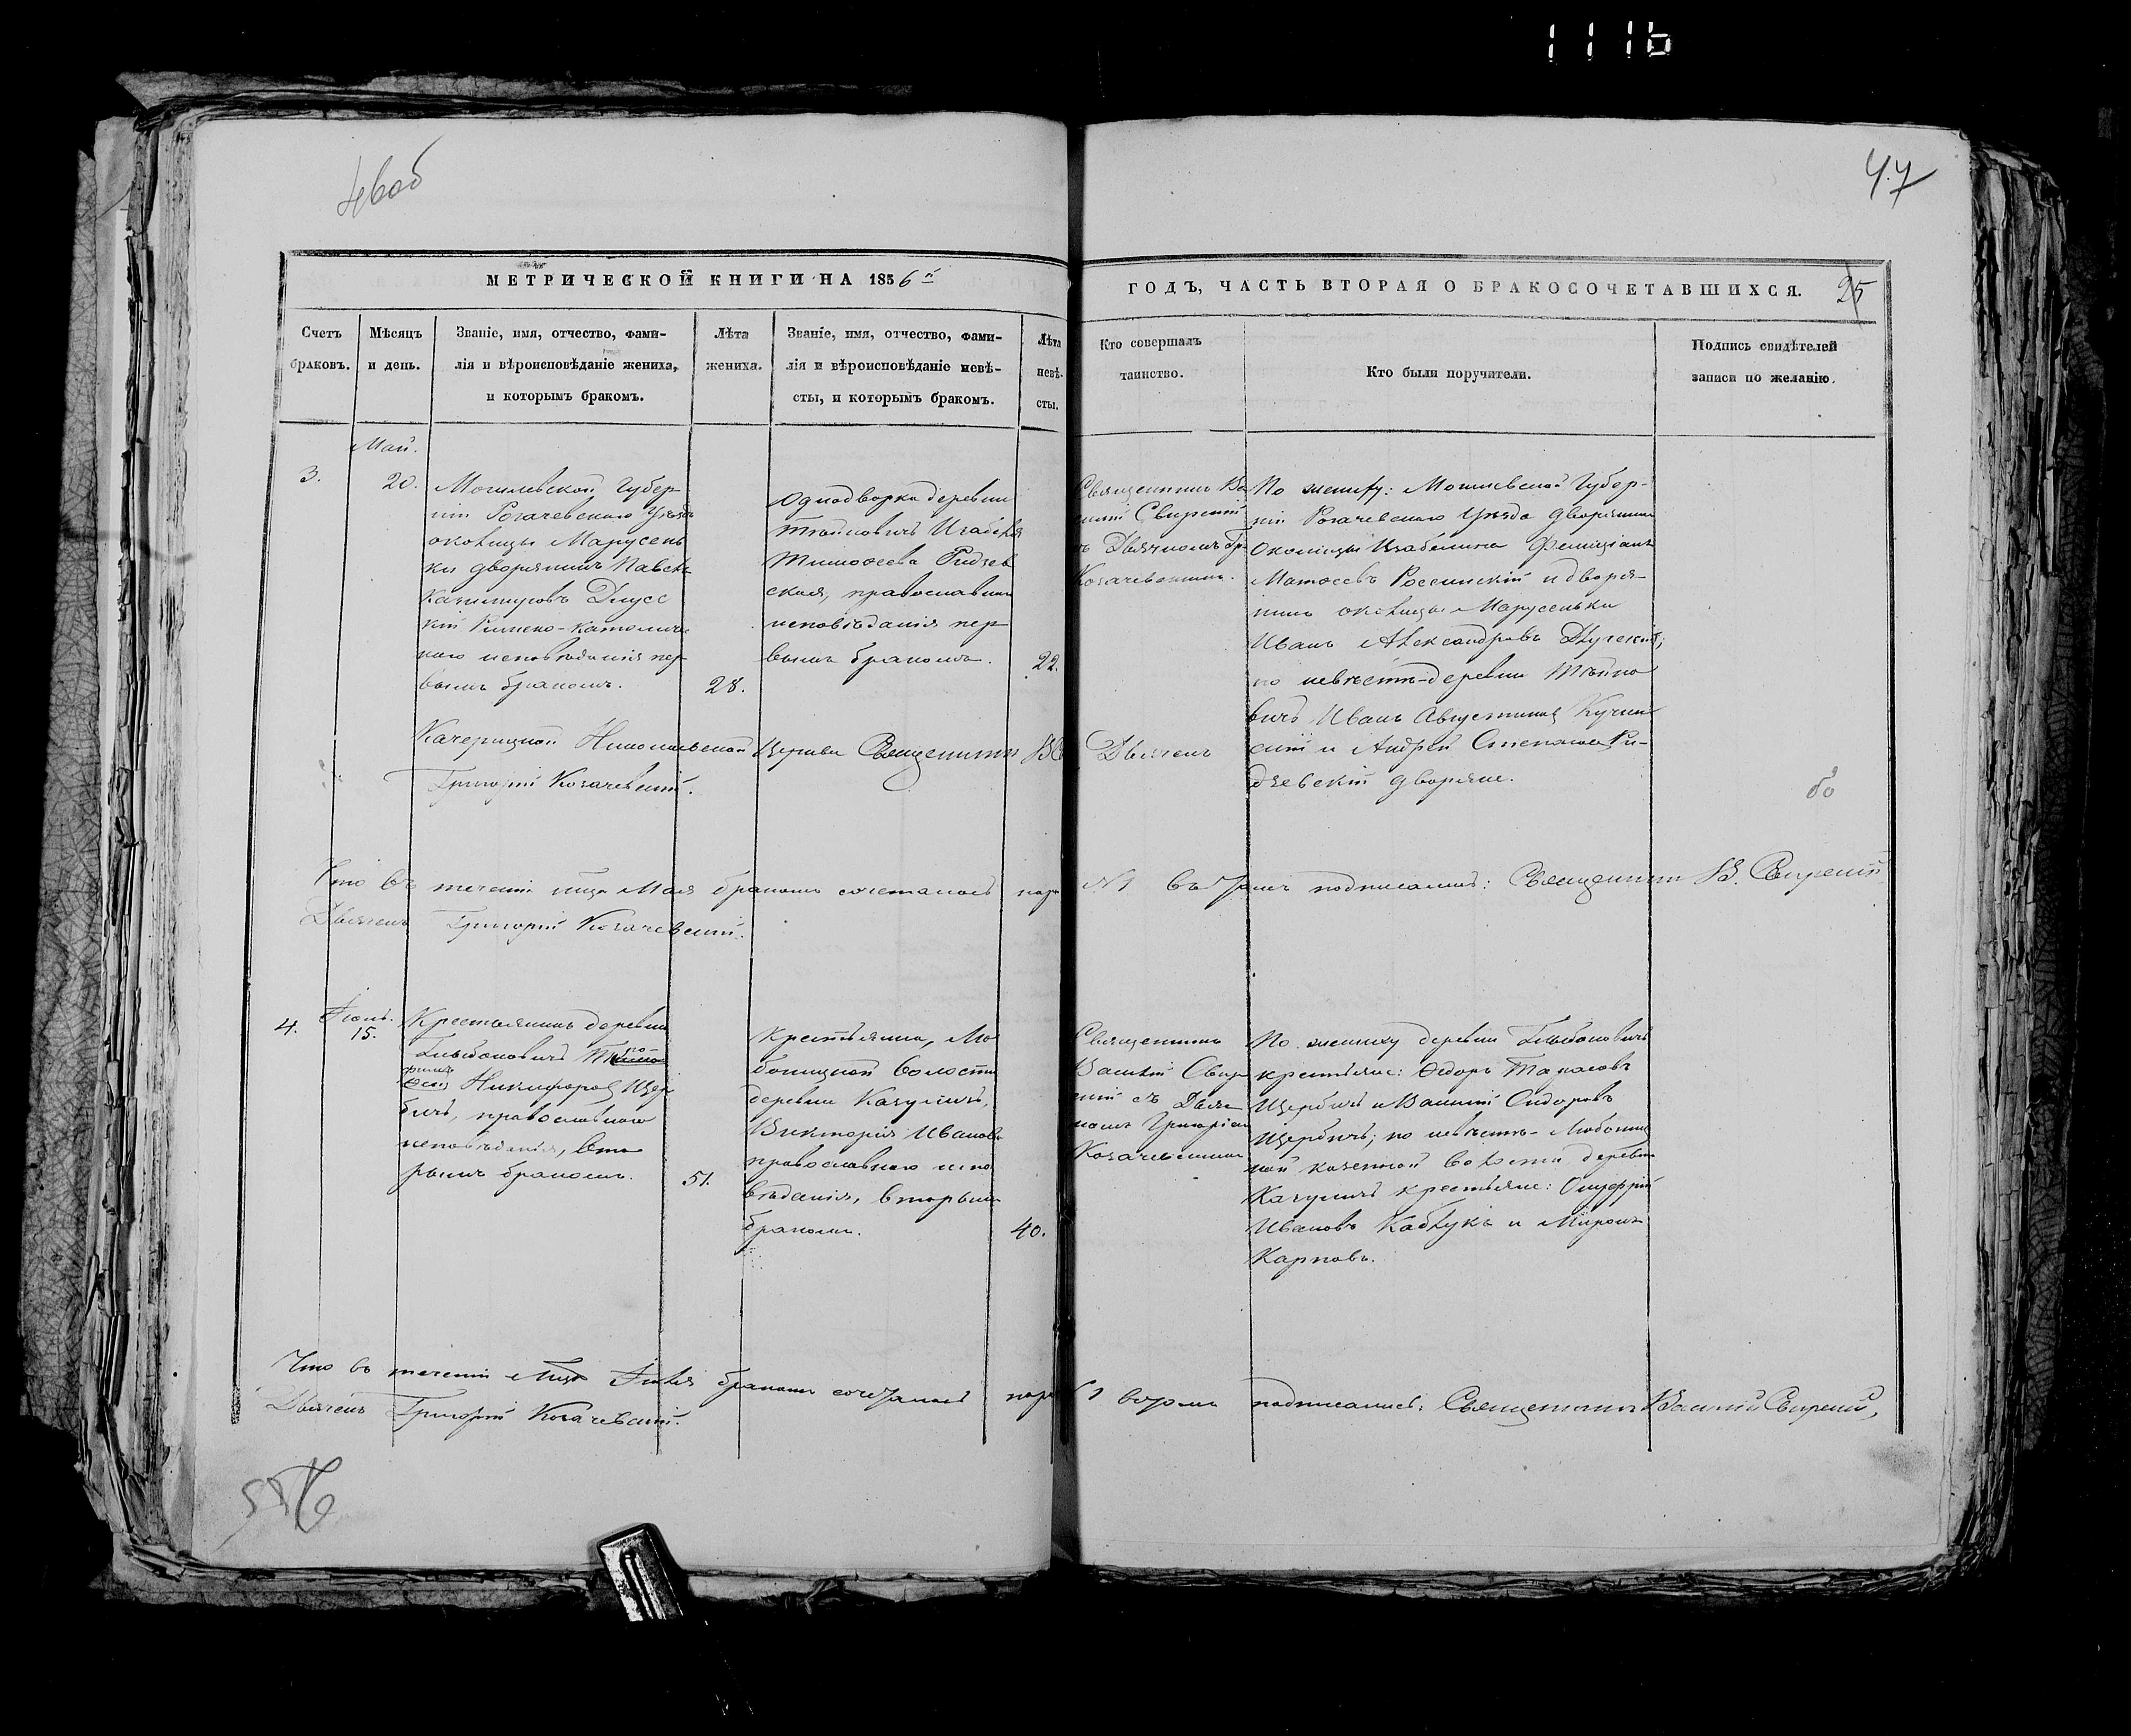 1116
46об
47
МЕТРИЧЕСКОЙ КНИГИ НА 1856й
ГОДЪ, ЧАСТЬ ВТОРАЯ О БРАКОСОЧЕТАВШИХСЯ.
25
Счетъ
браковъ.
Мѣсяцъ
и день.
Званіе, имя, отчество, фами-
лія и вѣроисповѣданіе жениха,
и которымъ бракомъ.
Лѣта
жениха.
Званіе, имя, отчество, фами-
лія и вѣроисповѣданіе невѣ-
сты, и которымъ бракомъ.
Лѣта
невѣ-
сты.
Кто совершалъ
таинство.
Кто были поручители.
Подпись свидѣтелей
записи по желанію.
Май.
3.
20.
Могилевской Губер
ніи Рогачевского Уѣзда
околицы Марусень
ки дворянинъ Павелъ
Казимировъ Длусс
кій Римско-католиче
каго исповѣданія пер
вымъ бракомъ.
28.
Однодворка деревни
Изабелла
Тимофеева Ридзев
ская, православнаго
исповѣданія пер
вымъ бракомъ.
22.
Священникъ Ва
силій Свирскій
съ Дьячкомъ Гр.
Козачевскимъ.
По жениху: Могилевской Губер-
ніи Рогачевского Уѣзда дворянинъ
Околицы Изабелина Фелиціанъ
Матвеевъ и дворя-
нинъ околицы Марусеньки
Иванъ Александровъ Длускій;
по невѣстѣ деревни
Иванъ Августинов Кучин
скій и Андрей Степанов Ри-
дзевскій дворяне.
Николаевской Церкви Священникъ В.
Дьячекъ
Григорій Козачевскій.
Что въ теченіи мца Мая бракомъ сочеталась пара
№ 1 въ томъ подписались: Священникъ В. Свирскій
Дьячекъ Григорій Козачевскій.
4.
Іюнь.
15.
Крестьянинъ деревни
Глыбоковичъ
Никифоров Щер
бичъ, православного
исповѣданія, вто
рымъ бракомъ.
51.
Крестьянка, Лю
боницкой волости
деревни Качуличъ,
Викторія Иванова
православного испо
вѣданія, вторымъ
бракомъ.
40.
Священникъ
Василій Свир
скій съ Дьяч
комъ Григоріем
Козачевскимъ
По жениху деревни Глыбоковичъ
крестьяне: Ѳедоръ Тарасовъ
Щербичъ и Василій Сидоровъ
Щербичъ; по невѣстѣ Любониц
кой казенной волости деревни
Качуличъ крестьяне: Онуфрій
Ивановъ Каблукъ и Миронъ
Карповъ.
Что въ теченіи Мца Іюня бракомъ сочеталась пара
1 въ томъ подписались: Священникъ Василій Свирскій,
Дьячекъ Григорій Козачевскій.